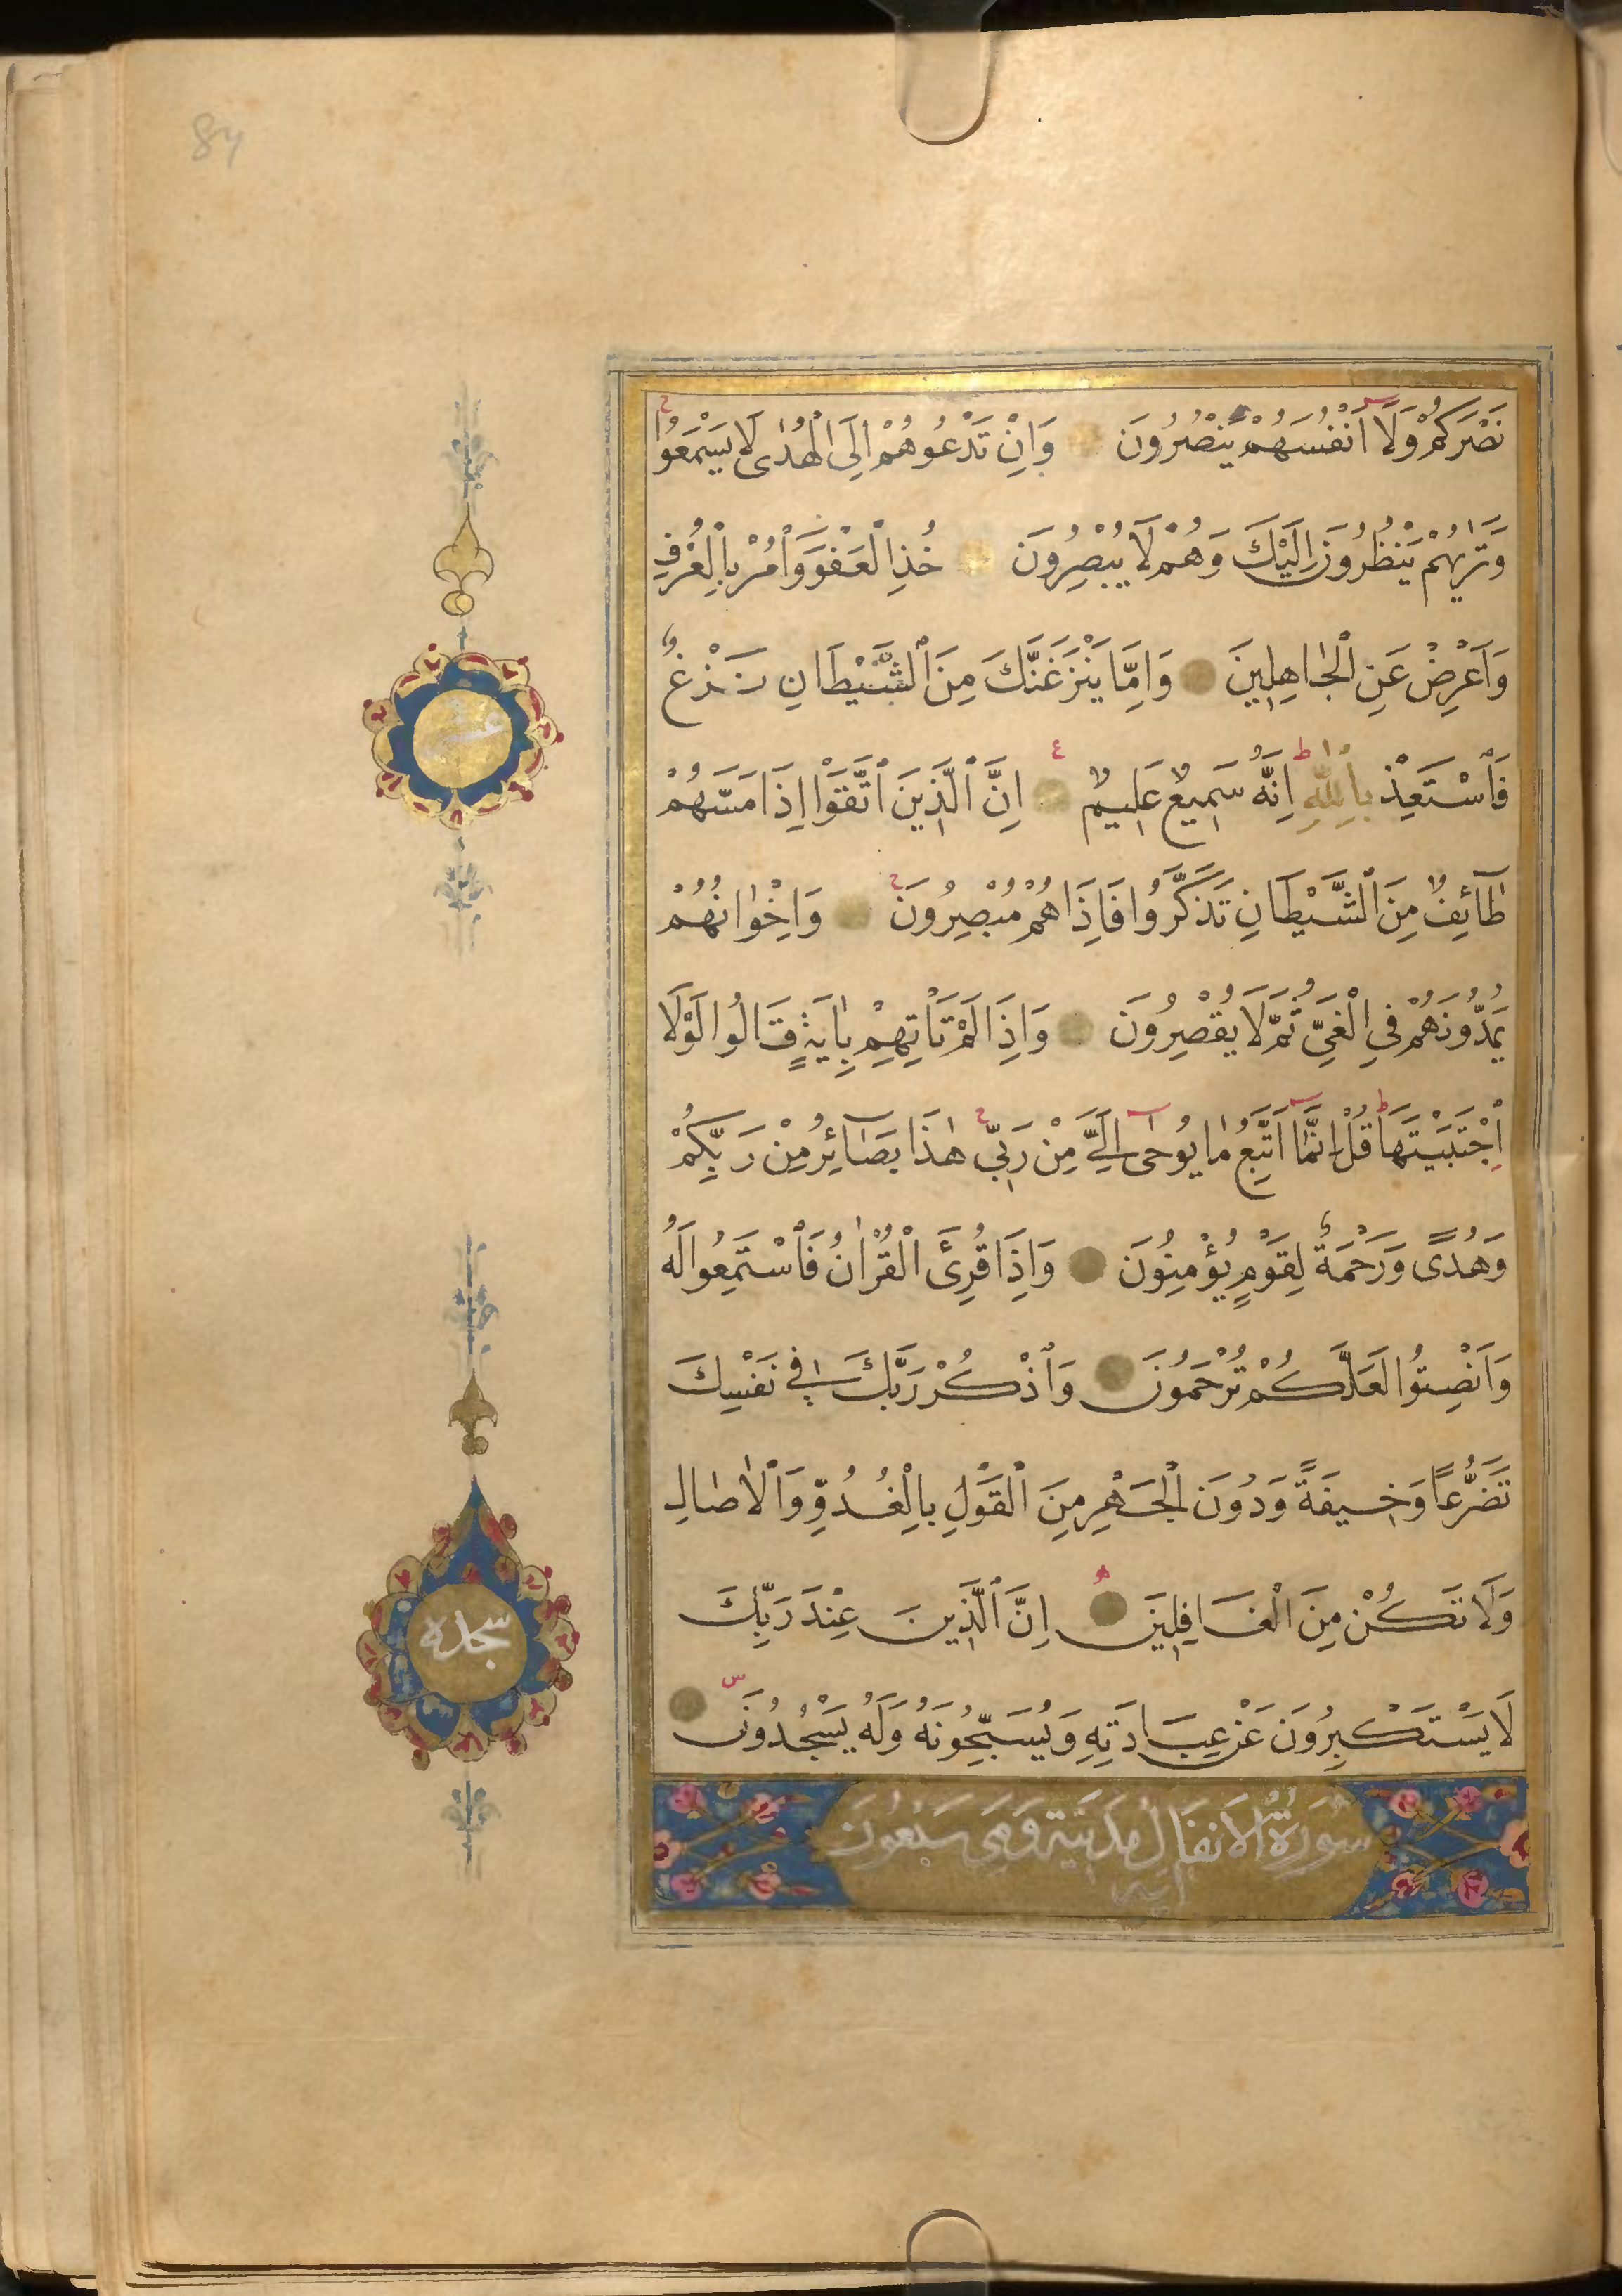 84
نَصْرَكُمْ وَلَا اَنْفُسَهُمْ يَنْصُرُونَ وَاِنْ تَدْعُوهُمْ اِلَى الْهُدٰى لَا يَسْمَعُوا
وَتَرٰيهُمْ يَنْظُرُونَ اِلَيْكَ وَهُمْ لَا يُبْصِرُونَ خُذِ الْعَفْوَ وَأْمُرْ بِالْعُرْفِ
وَاَعْرِضْ عَنِ الْجَاهِلِينَ وَاِمَّا يَنْزَغَنَّكَ مِنَ الشَّيْطَانِ نَزْغٌ
فَاسْتَعِذْ بِاللّٰهِ اِنَّهُ سَمِيعٌ عَلِيمٌ اِنَّ الَّذِينَ اتَّقَوْا اِذَا مَسَّهُمْ
طَآئِفٌ مِنَ الشَّيْطَانِ تَذَكَّرُوا فَاِذَا هُمْ مُبْصِرُونَ وَاِخْوَانُهُمْ
يَمُدُّونَهُمْ فِي الْغَيِّ ثُمَّ لَا يُقْصِرُونَ وَاِذَا لَمْ تَأْتِهِمْ بِاٰيَةٍ قَالُوا لَوْلَا
اجْتَبَيْتَهَا قُلْ اِنَّمَا اَتَّبِعُ مَا يُوحٰى اِلَيَّ مِنْ رَبِّي هٰذَا بَصَآئِرُ مِنْ رَبِّكُمْ
وَهُدًى وَرَحْمَةٌ لِقَوْمٍ يُؤْمِنُونَ وَاِذَا قُرِئَ الْقُرْاٰنُ فَاسْتَمِعُوا لَهُ
وَاَنْصِتُوا لَعَلَّكُمْ تُرْحَمُونَ وَاذْكُرْ رَبَّكَ فِي نَفْسِكَ
تَضَرُّعًا وَخِيفَةً وَدُونَ الْجَهْرِ مِنَ الْقَوْلِ بِالْغُدُوِّ وَالْاٰصَالِ
وَلَا تَكُنْ مِنَ الْغَافِلِينَ اِنَّ الَّذِينَ عِنْدَ رَبِّكَ
لَا يَسْتَكْبِرُونَ عَنْ عِبَادَتِهِ وَيُسَبِّحُونَهُ وَلَهُ يَسْجُدُونَ
سُورَةُ الْاَنفَالِ مَدَنِيَّة وَهِيَ سَبْعُونَ
آية
عشر
سجده